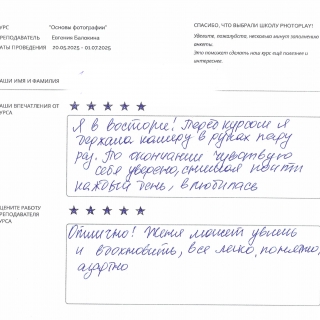 УРС "Основы фотографии"
РЕПОДАВАТЕЛЬ Евгения Балакина
АТЫ ПРОВЕДЕНИЯ 20.05.2025 - 01.07.2025
СПАСИБО, ЧТО ВЫБРАЛИ ШКОЛУ PHOTOPLAY!
Уделите, пожалуйста, несколько минут заполнению
анкеты.
Это поможет сделать наш курс ещё полезнее и
интереснее.
АШИ ИМЯ И ФАМИЛИЯ
АШИ ВПЕЧАТЛЕНИЯ ОТ
УРСА
Я в восторге! Перед курсом я
держала камеру в руках пару
раз. По окончании чувствую
себя уверено, снимала почти
каждый день, влюбилась
ЦЕНИТЕ РАБОТУ
РЕПОДАВАТЕЛЯ
УРСА
Отлично! Женя может увлечь
и вдохновить, все легко, понятно,
азартно